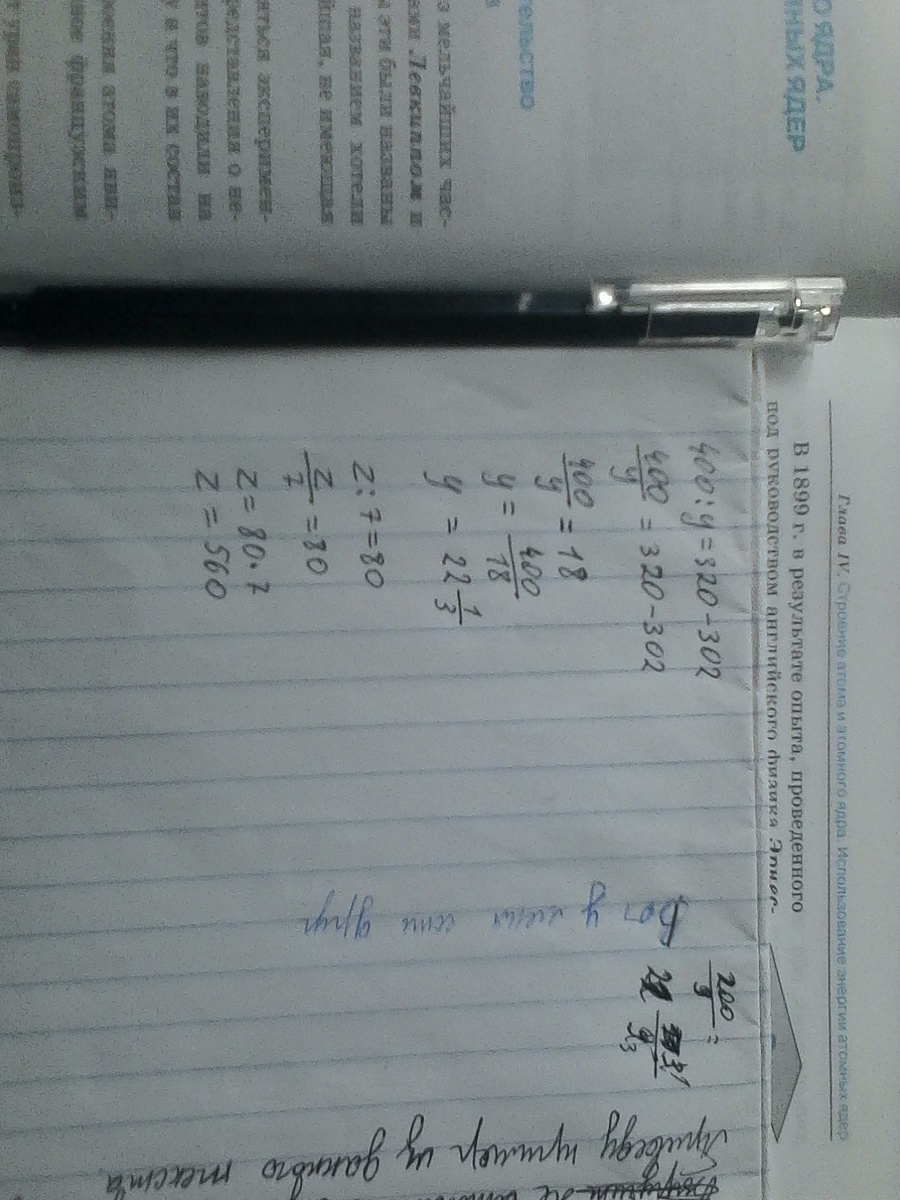 О ЯДРА.
НЫХ ЯДЕР
тельство
з мельчайших час-
ами Левкиппом и
ы эти были названы
названием хотели
йшая, не имеющая
аться эксперимен-
редставления о не-
тов наводили на
у и что в их состав
роения атома яви-
ное французским
Глава IV. Строение атома и атомного ядра. Использование энергии атомных ядер
В 1899 г. в результате опыта, проведенного
под руководством английского физика Эрнес-
400:y=320-302
400/y = 320-302
400/y = 18
y = 400/18
y = 22 1/3
z:7=80
z/7 = 80
z = 80·7
z = 560
Вот у меня есть друг
200/9 =
Приведу пример из данного текста